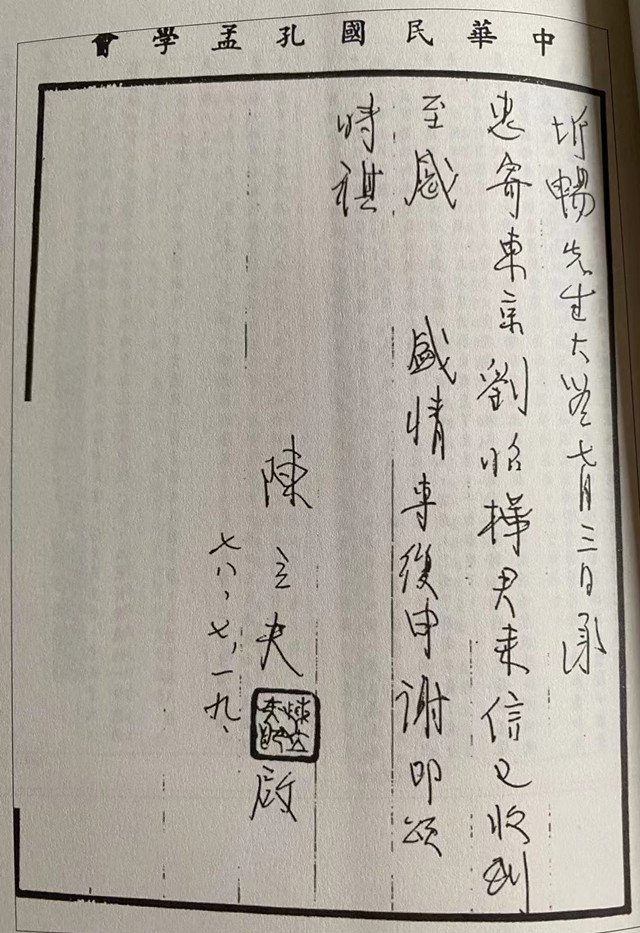 中華民國孔孟學會
圻暢先生大鑒七月三日承
惠寄東京劉昭樺君来信已收到
至感 盛情專復申謝即頌
時祺
陳立夫 啟
七八、七、一九、